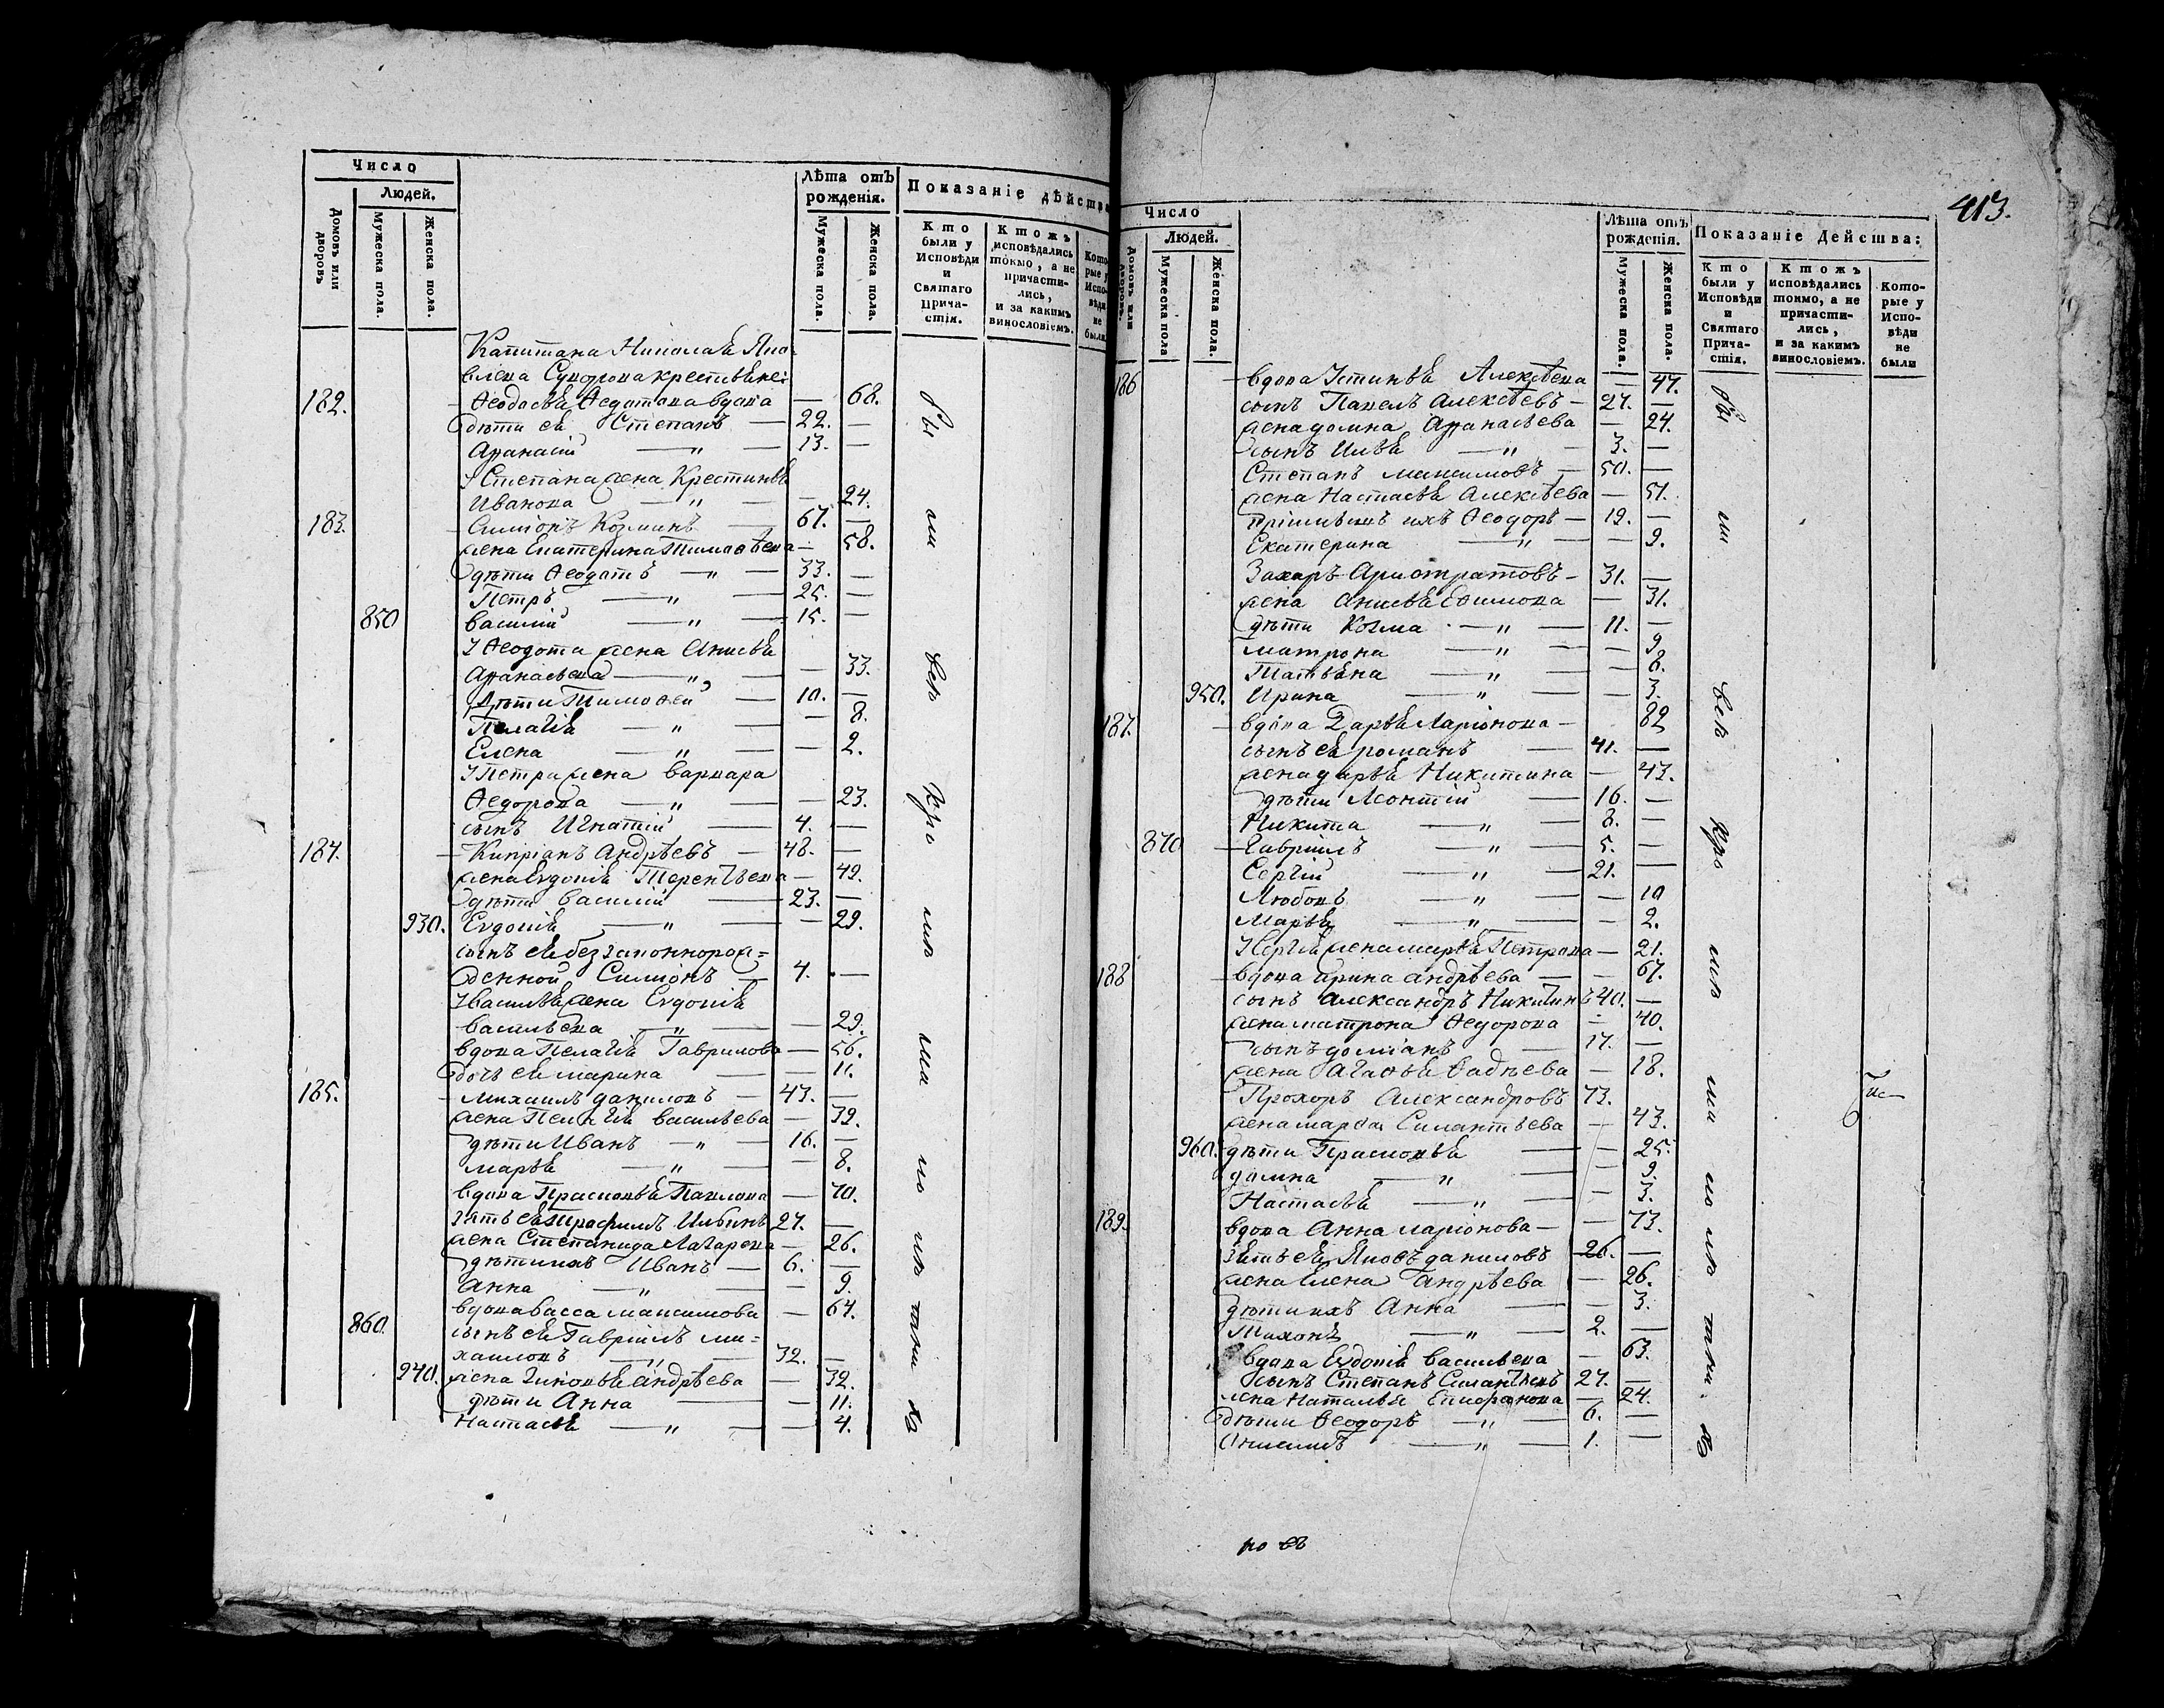 Число
Людей.
Домовъ или дворовъ
Мужеска пола.
Женска пола.
Лѣта отъ рожденія.
Мужеска пола.
Женска пола.
Показаніе дѣйства
Кто были у Исповѣди и Святаго Прича-стія.
Ктожъ исповѣдались токмо, а не причасти-лись, и за какимъ винословіемъ.
Кото-рые у Испо-вѣди не были
Капитана Николая Яко-
влева крестьяне:
182. Феодосья Федотова вдова — 68.
дѣти ея Степанъ — 22. —
Афанасій — " — 13. —
У Степана жена Крестинья
Иванова — " — — 24.
183. Симіонъ Козминъ — 67. —
жена Екатерина Тимофѣева — 58.
дѣти Феодотъ — " — 33. —
Петръ — " — 25. —
850 Василій — " — 15. —
У Феодота жена Анисья
Афанасьева — " — — 33.
дѣти Тимофей — 10. —
Пелагія — " — — 8.
Елена — " — — 2.
У Петра жена Варвара
Федорова — " — — 23.
сынъ Игнатій — 4. —
184. Кипріанъ Андрѣевъ — 48. —
жена Евдокія Терентьева — 49.
дѣти Василій — 23. —
930. Евдокія — " — — 29.
сынъ ея беззаконнорож=
денной Симіонъ — 4. —
У Василья жена Евдокія
Васильева — " — — 29.
вдова Пелагія Гаврилова — 56.
дочь ея Марина — — 11.
185. Михаилъ Даниловъ — 43. —
жена Пелагія Васильева — 39.
дѣти Иванъ — " — 16. —
Марья — " — — 8.
вдова Прасковья Павлова — 70.
зять ея Трофимъ Ильинъ 27. —
жена Степанида Лазарева — 26.
дѣти ихъ Иванъ — 6. —
Анна — " — — 9.
вдова Васса Максимова — 64.
860. сынъ ея Гавріилъ Ми=
хаиловъ — " — 32. —
940. жена Андрѣева — 32.
дѣти Анна — — 11.
Настасья — " — — 4.
413.
Число
Людей.
Домовъ или дворовъ.
Мужеска пола
Женска пола.
Лѣта отъ рожденія.
Мужеска пола.
Женска пола.
Показаніе Действа:
Кто были у Исповѣди и Святаго Прича-стія.
Ктожъ исповѣдались токмо, а не причасти-лись, и за какимъ винословіемъ.
Кото-рые у Испо-вѣди не были
186 вдова Устинья Алексѣева — 47.
сынъ Павелъ Алексѣевъ — 27. —
жена Домна Афанасьева — 24.
сынъ Илья — " — 3. —
Степанъ Максимовъ — 50. —
жена Настасья Алексѣева — 51.
ихъ Феодоръ — 19. —
Екатерина — " — — 9.
Захаръ — 31. —
жена Анисья Ефимова — 31.
дѣти Козма — " — 11. —
Матрона — " — — 9
Татьяна — " — — 6.
950. Ирина — " — — 3.
187. вдова Дарья Ларіонова — 82
сынъ ея Романъ — 41. —
жена Дарья Никитина — 43.
дѣти Леонтій — 16. —
Никита — " — 8. —
870 Гавріилъ — " — 5. —
Сергій — " — 21. —
Любовь — " — — 10
Марья — " — — 2.
У Сергія жена Марья Петрова — 21.
188 вдова Ирина Андрѣева — — 67.
сынъ Александръ Никитинъ 40. —
жена Матрона Федорова — 40.
сынъ Доміанъ — 17. —
жена Агафья Фадѣева — 18.
Прохоръ Александровъ 73.
жена Марфа Силантьева — 43.
960. дѣти Прасковья — — 25.
Домна — " — — 9.
Настасья — " — — 3.
189. вдова Анна Ларіонова — — 73.
зять ея Яковъ Даниловъ 26. —
жена Елена Андрѣева — 26.
дѣти ихъ Анна — — 3.
Тихонъ — " — 2. —
вдова Евдокія Васильева — 63.
сынъ Степанъ Силантьевъ 27. —
жена Наталья Епифанова — 24.
дѣти Феодоръ — " — 6. —
Анисимъ — " — 1. —